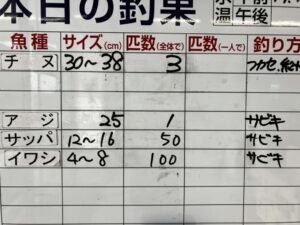 本日の釣果
水温 午前
午後
魚種 サイズ(cm) 匹数(全体で) 匹数(一人で) 釣り方
チヌ 30~38 3 フカセ
アジ 25 1 サビキ
サッパ 12~16 50 サビキ
イワシ 4~8 100 サビキ